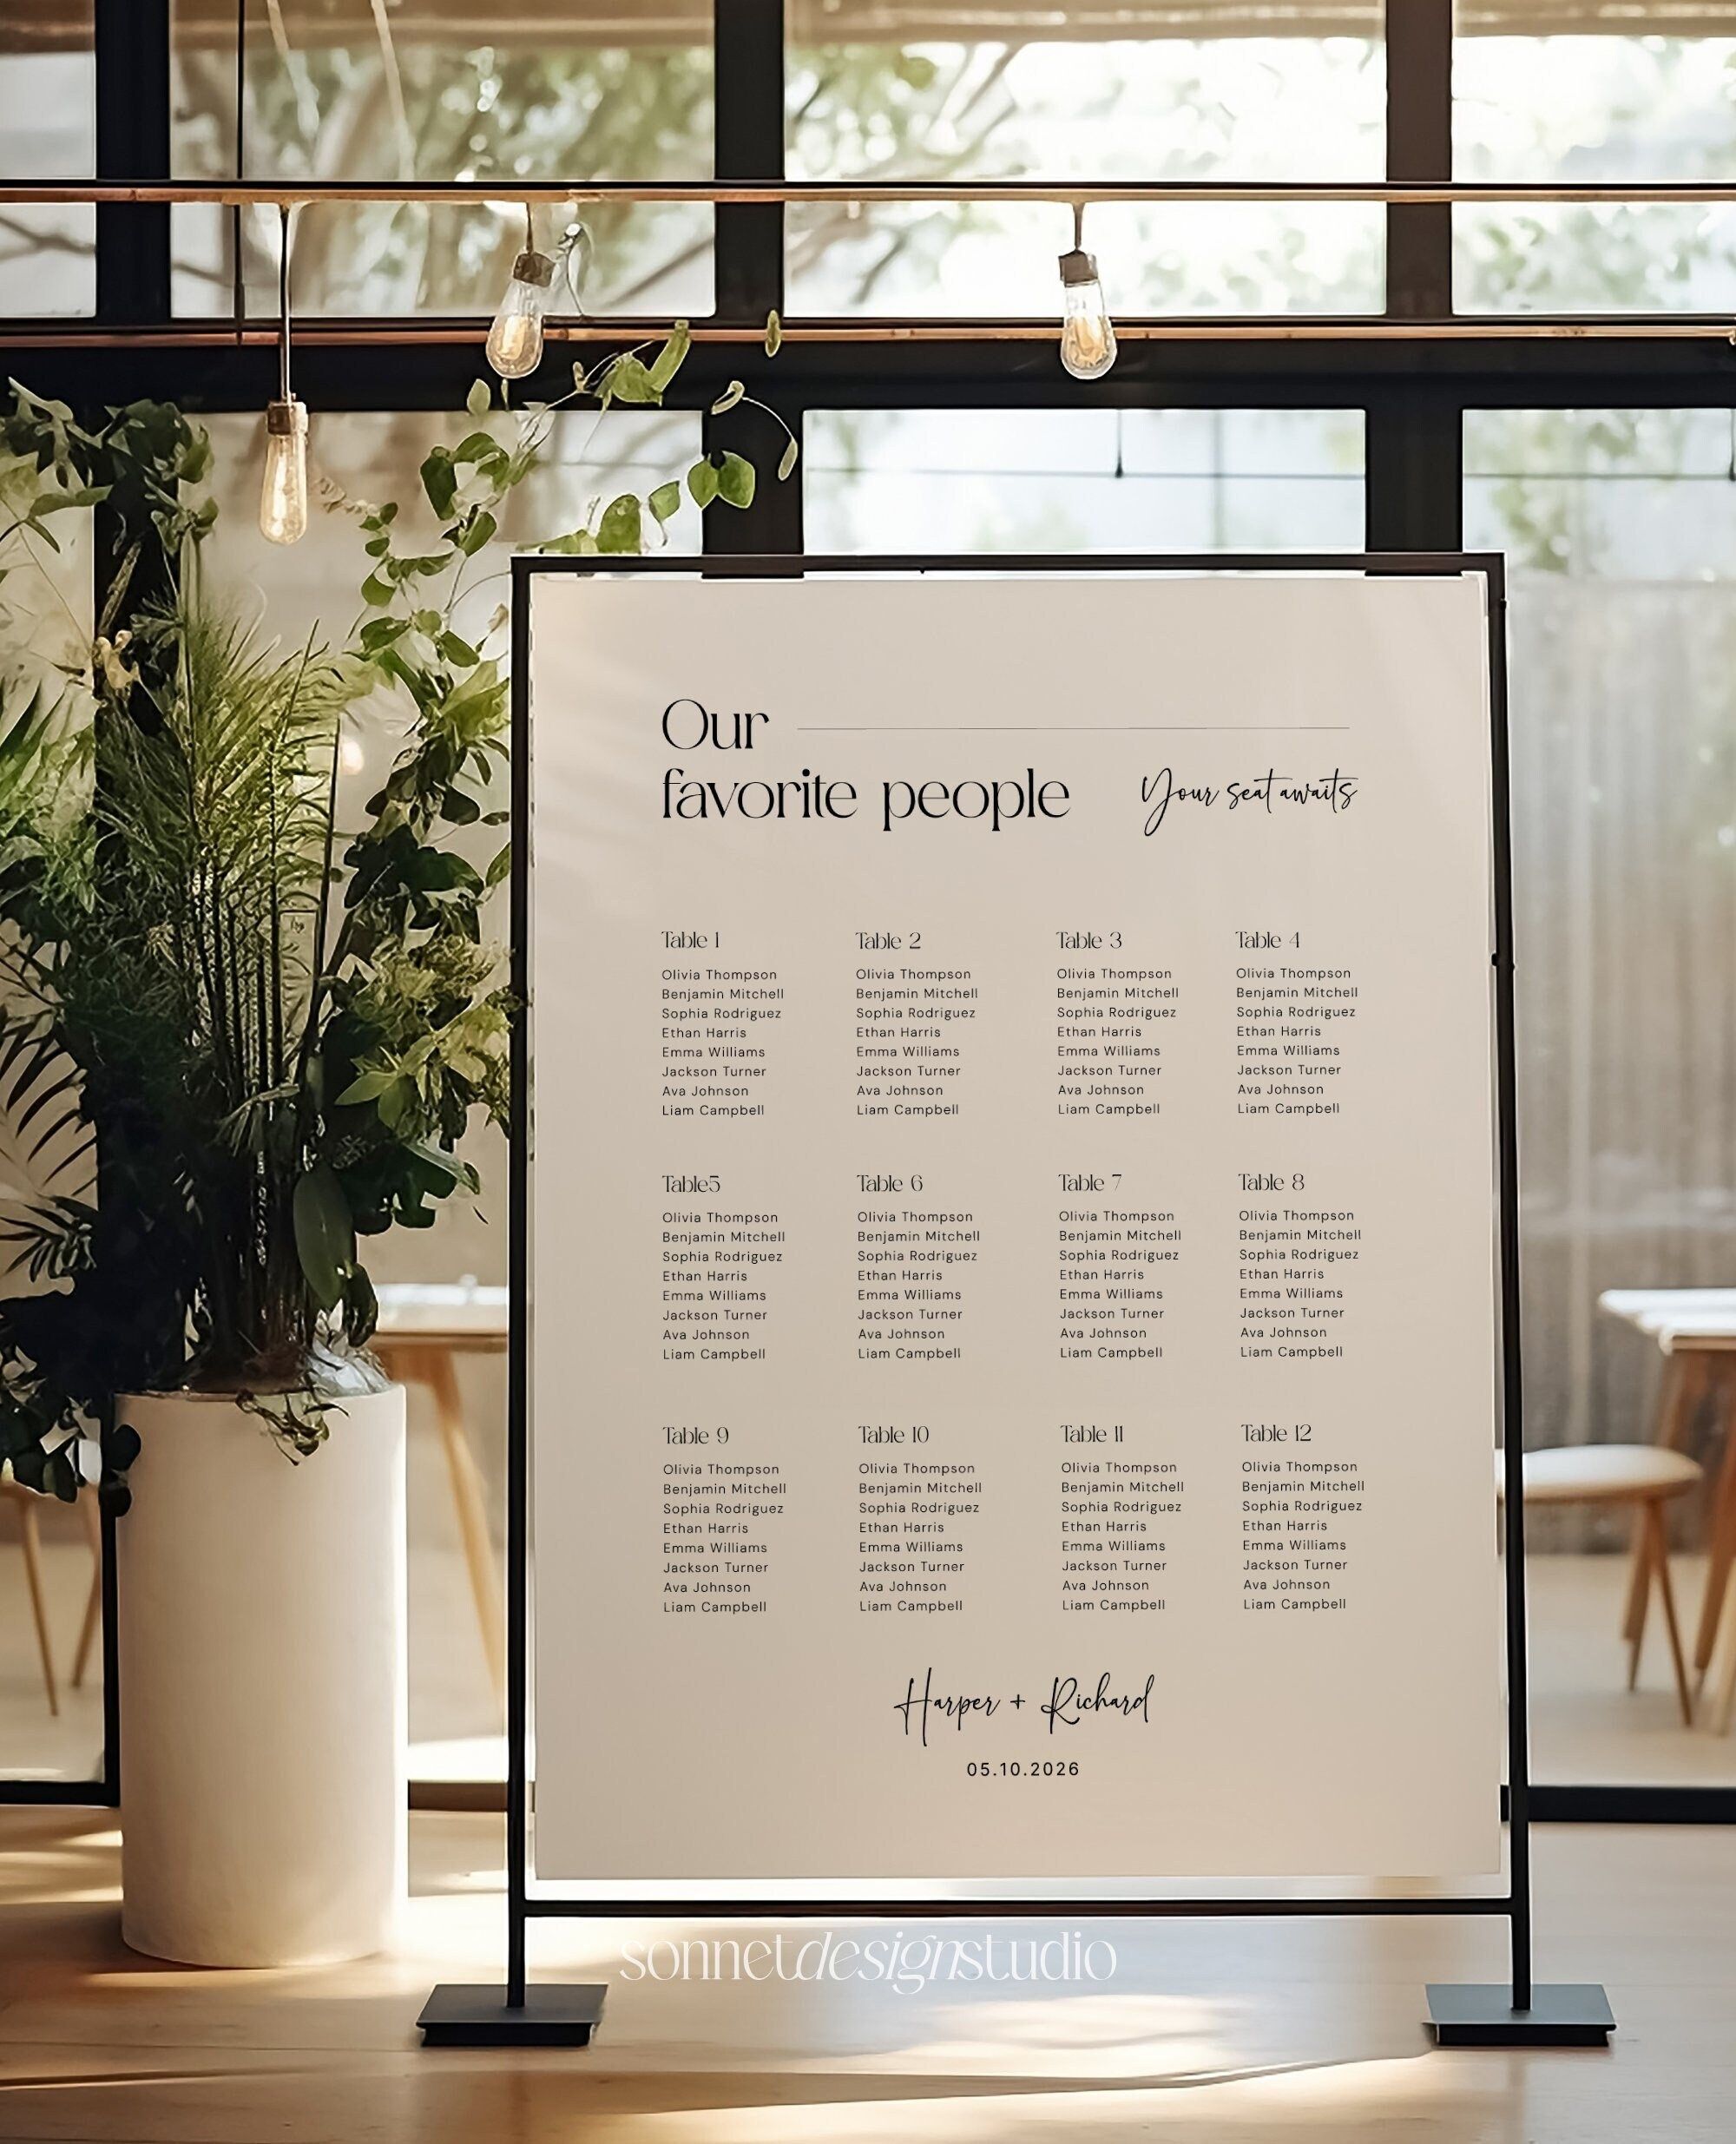 Our
favorite people
Your seat awaits
Table 1
Olivia Thompson
Benjamin Mitchell
Sophia Rodriguez
Ethan Harris
Emma Williams
Jackson Turner
Ava Johnson
Liam Campbell
Table 2
Olivia Thompson
Benjamin Mitchell
Sophia Rodriguez
Ethan Harris
Emma Williams
Jackson Turner
Ava Johnson
Liam Campbell
Table 3
Olivia Thompson
Benjamin Mitchell
Sophia Rodriguez
Ethan Harris
Emma Williams
Jackson Turner
Ava Johnson
Liam Campbell
Table 4
Olivia Thompson
Benjamin Mitchell
Sophia Rodriguez
Ethan Harris
Emma Williams
Jackson Turner
Ava Johnson
Liam Campbell
Table5
Olivia Thompson
Benjamin Mitchell
Sophia Rodriguez
Ethan Harris
Emma Williams
Jackson Turner
Ava Johnson
Liam Campbell
Table 6
Olivia Thompson
Benjamin Mitchell
Sophia Rodriguez
Ethan Harris
Emma Williams
Jackson Turner
Ava Johnson
Liam Campbell
Table 7
Olivia Thompson
Benjamin Mitchell
Sophia Rodriguez
Ethan Harris
Emma Williams
Jackson Turner
Ava Johnson
Liam Campbell
Table 8
Olivia Thompson
Benjamin Mitchell
Sophia Rodriguez
Ethan Harris
Emma Williams
Jackson Turner
Ava Johnson
Liam Campbell
Table 9
Olivia Thompson
Benjamin Mitchell
Sophia Rodriguez
Ethan Harris
Emma Williams
Jackson Turner
Ava Johnson
Liam Campbell
Table 10
Olivia Thompson
Benjamin Mitchell
Sophia Rodriguez
Ethan Harris
Emma Williams
Jackson Turner
Ava Johnson
Liam Campbell
Table 11
Olivia Thompson
Benjamin Mitchell
Sophia Rodriguez
Ethan Harris
Emma Williams
Jackson Turner
Ava Johnson
Liam Campbell
Table 12
Olivia Thompson
Benjamin Mitchell
Sophia Rodriguez
Ethan Harris
Emma Williams
Jackson Turner
Ava Johnson
Liam Campbell
Harper + Richard
05.10.2026
sonnetdesignstudio